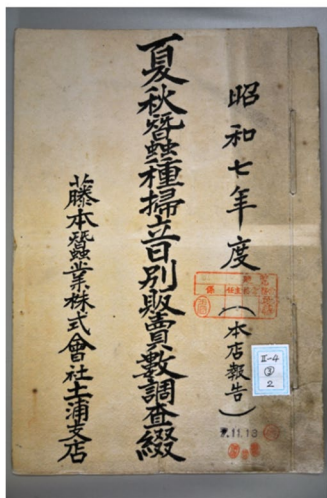 昭和七年度(本店報告)
夏秋蚕種掃立日別販賣數調査綴
藤本蠶業株式會社土浦支店
II-4
③
2
7.11.13